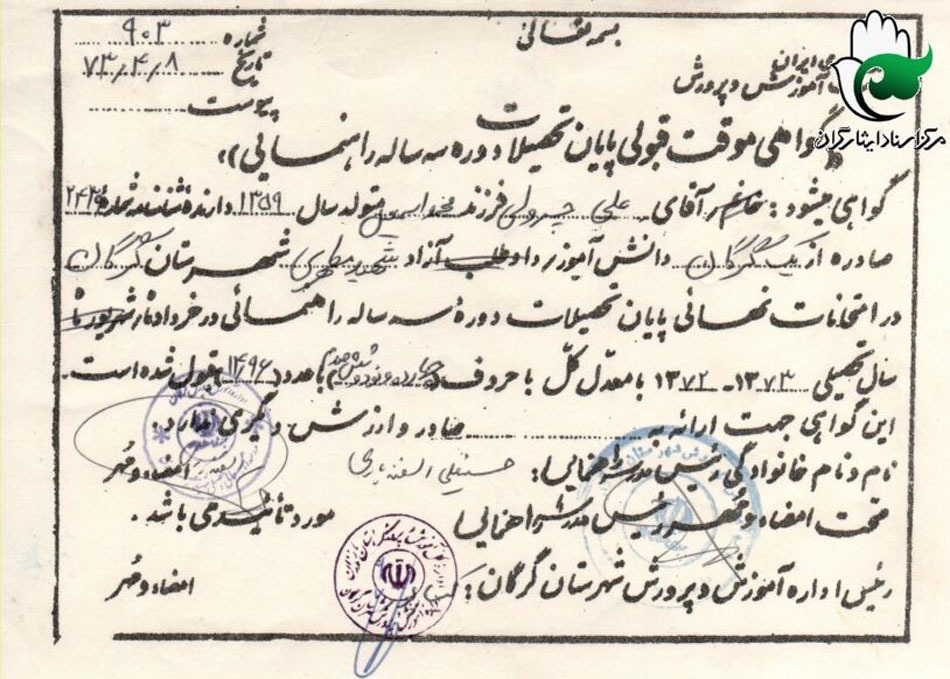 بسمه تعالی
شماره ۹۰۳
تاریخ ۷۳/۴/۸
پیوست
ی ایران
آموزش و پرورش
مرکز اسناد ایثارگران
«گواهی موقت قبولی پایان تحصیلات دوره سه ساله راهنمائی»
گواهی میشود: خانم/آقای علی فرزند محمد اسمعیل متولد سال ۱۳۵۹ دارنده شناسنامه شماره ۲۴۳۹
صادره از یک گرگان دانش آموز/داوطلب آزاد شهید مطهری شهرستان گرگان
در امتحانات نهائی پایان تحصیلات دورهٔ سه ساله راهنمائی در خرداد ماه/شهریور ماه
سال تحصیلی ۱۳۷۳-۱۳۷۲ با معدل کلّ با حروف (چهارده و نود و شش صدم) با عدد (۱۴/۹۶) قبول شده است.
این گواهی جهت ارائه به صادر و ارزش دیگری ندارد.
نام و نام خانوادگی رئیس مدرسه راهنمایی: حسینعلی امضاء و مهر
صحت امضاء و مهر رئیس مدرسه راهنمایی مورد تأیید می باشد.
رئیس اداره آموزش و پرورش شهرستان گرگان: امضاء و مهر